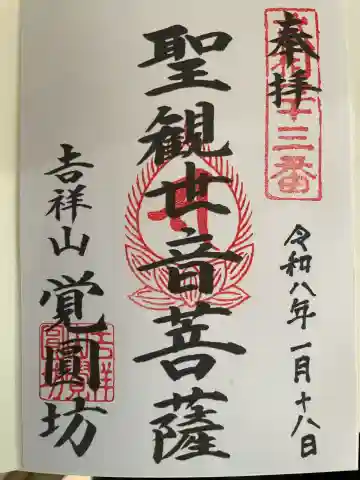 奉拝
十三番
令和八年一月十八日
聖観世音菩薩
吉祥山
覚圓坊